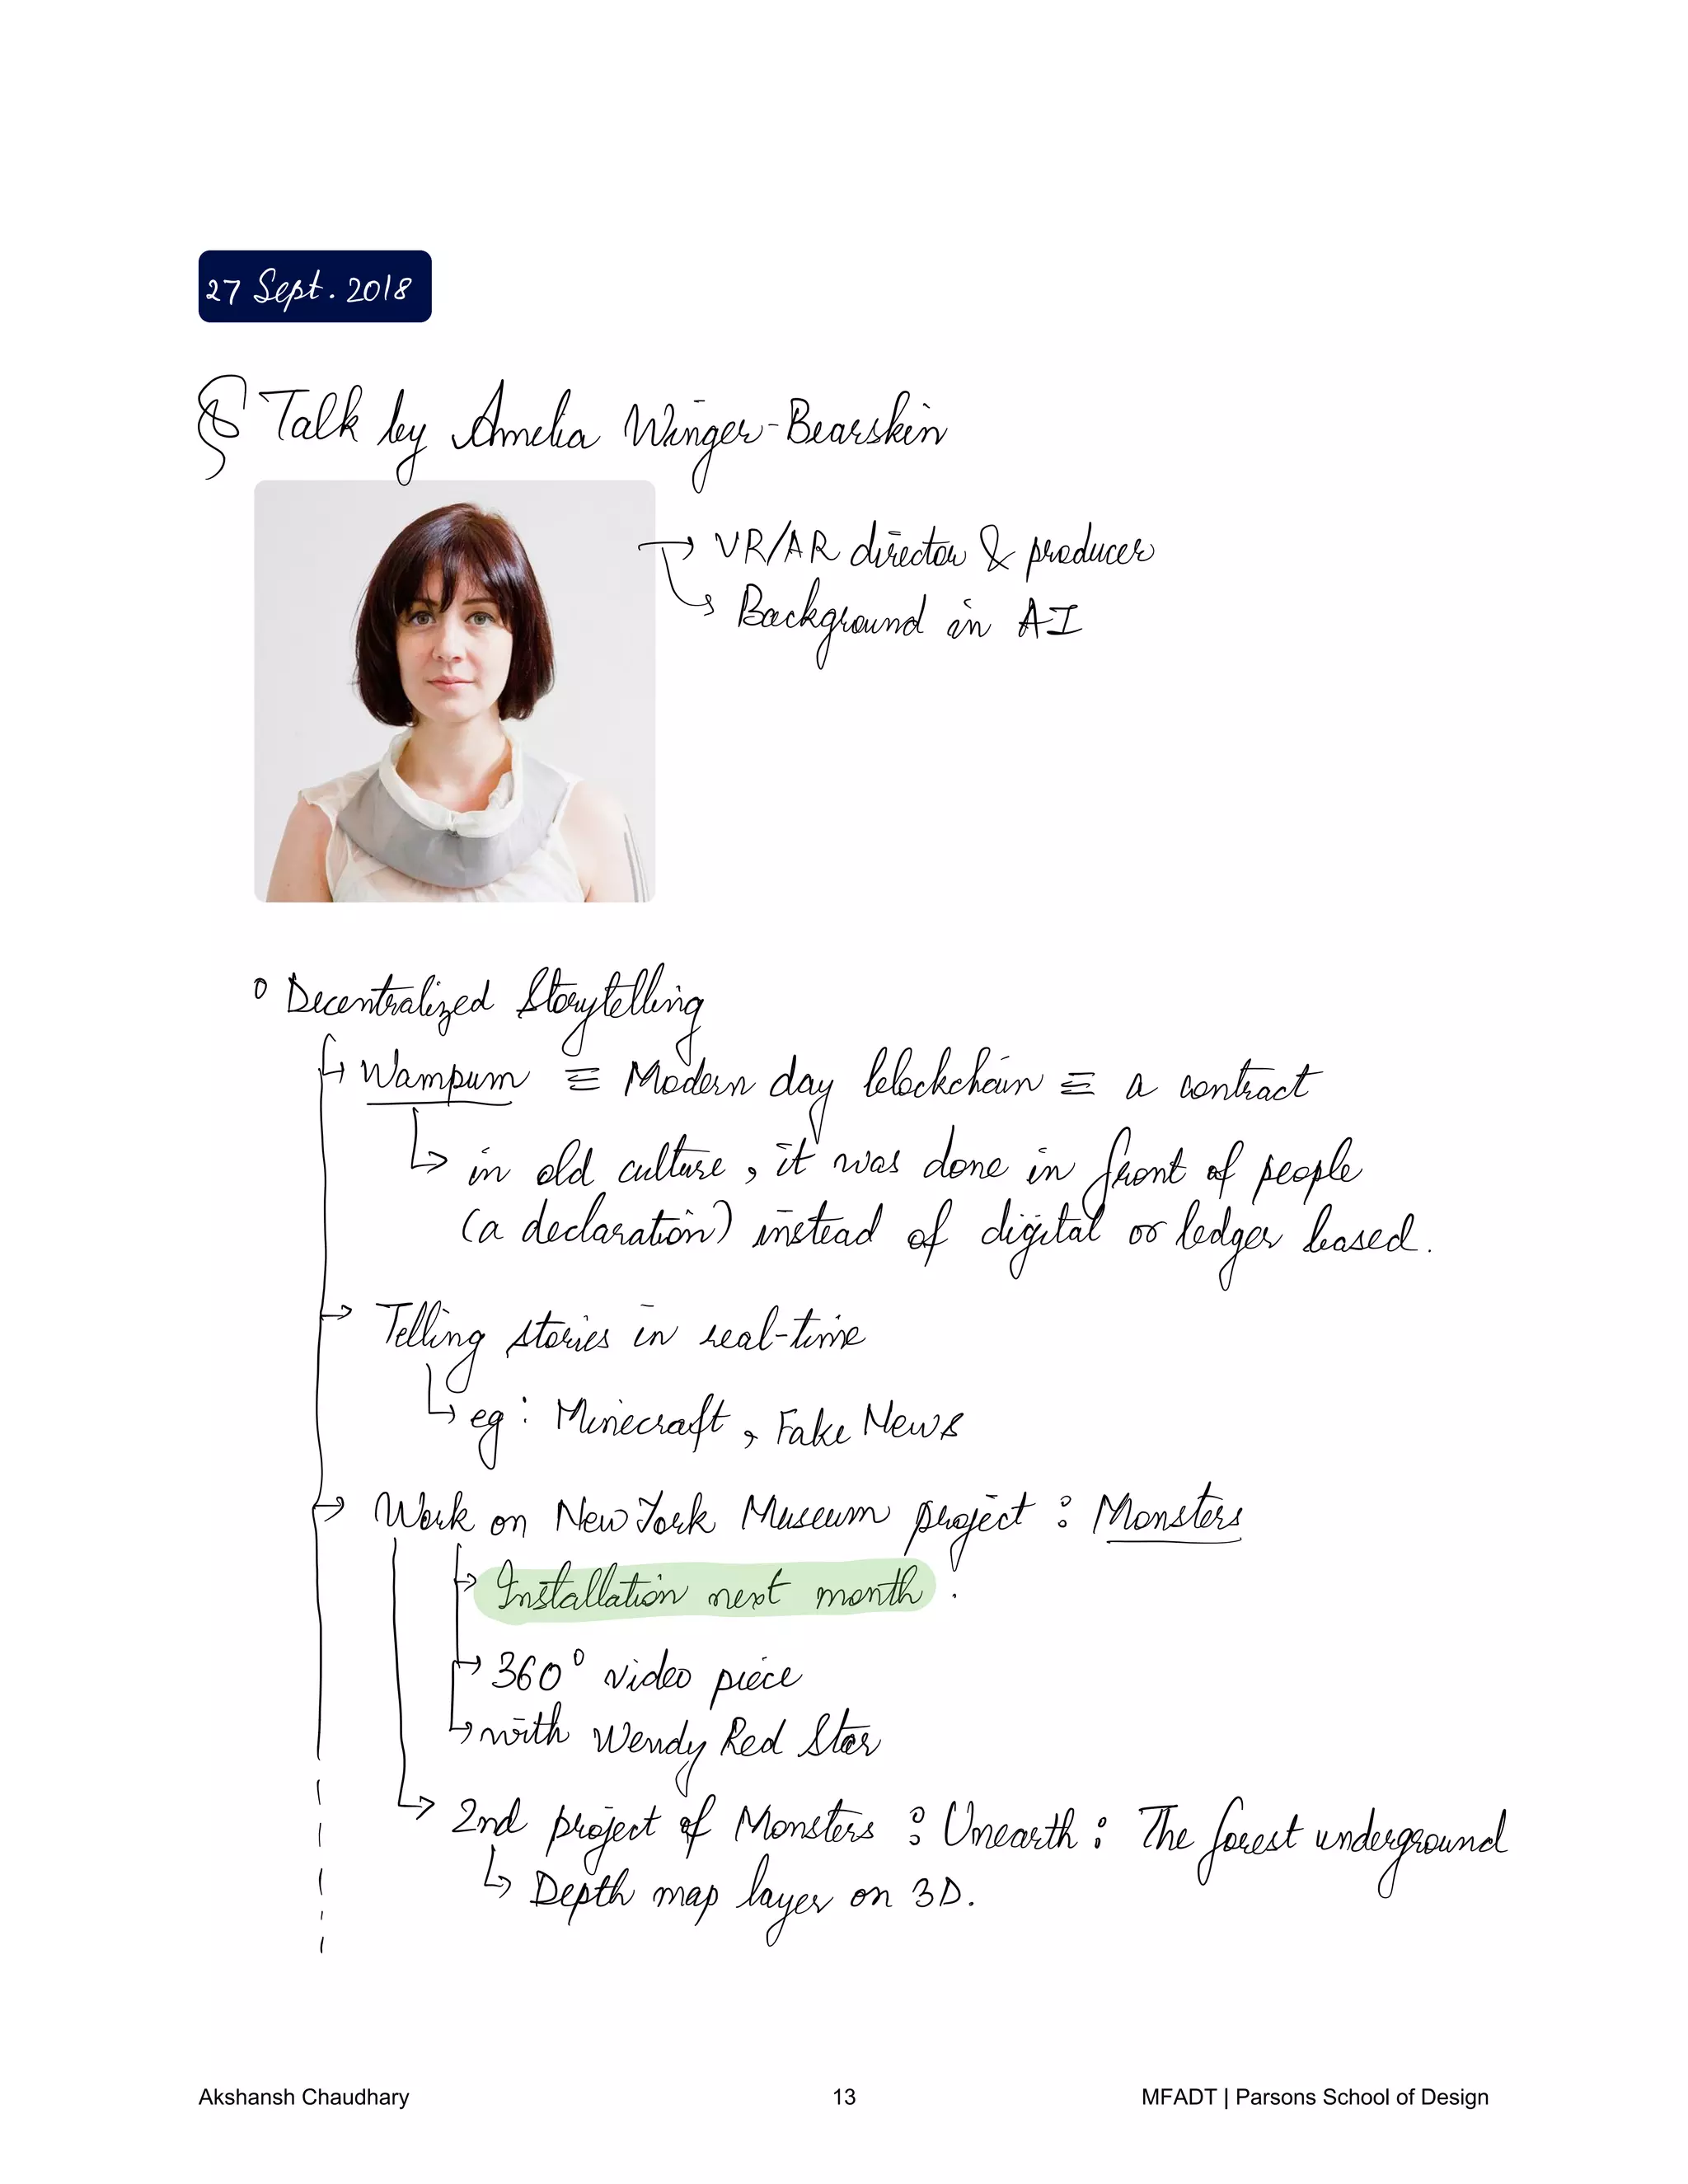 27 Sept. 2018
§ Talk by Amelia Winger-Bearskin
→ VR/AR director & producer
↳ Background in AI
° Decentralized Storytelling
↳ Wampum ≡ Modern day blockchain ≡ a contract
↳ in old culture, it was done in front of people
(a declaration) instead of digital or ledger based.
→ Telling stories in real-time
↳ eg: Minecraft, Fake News
→ Work on New York Museum project : Monsters
→ Installation next month.
→ 360° video piece
↳ with Wendy Red Star
↳ 2nd project of Monsters : Unearth : The forest underground
↳ Depth map layer on 3D.
Akshansh Chaudhary 13 MFADT | Parsons School of Design